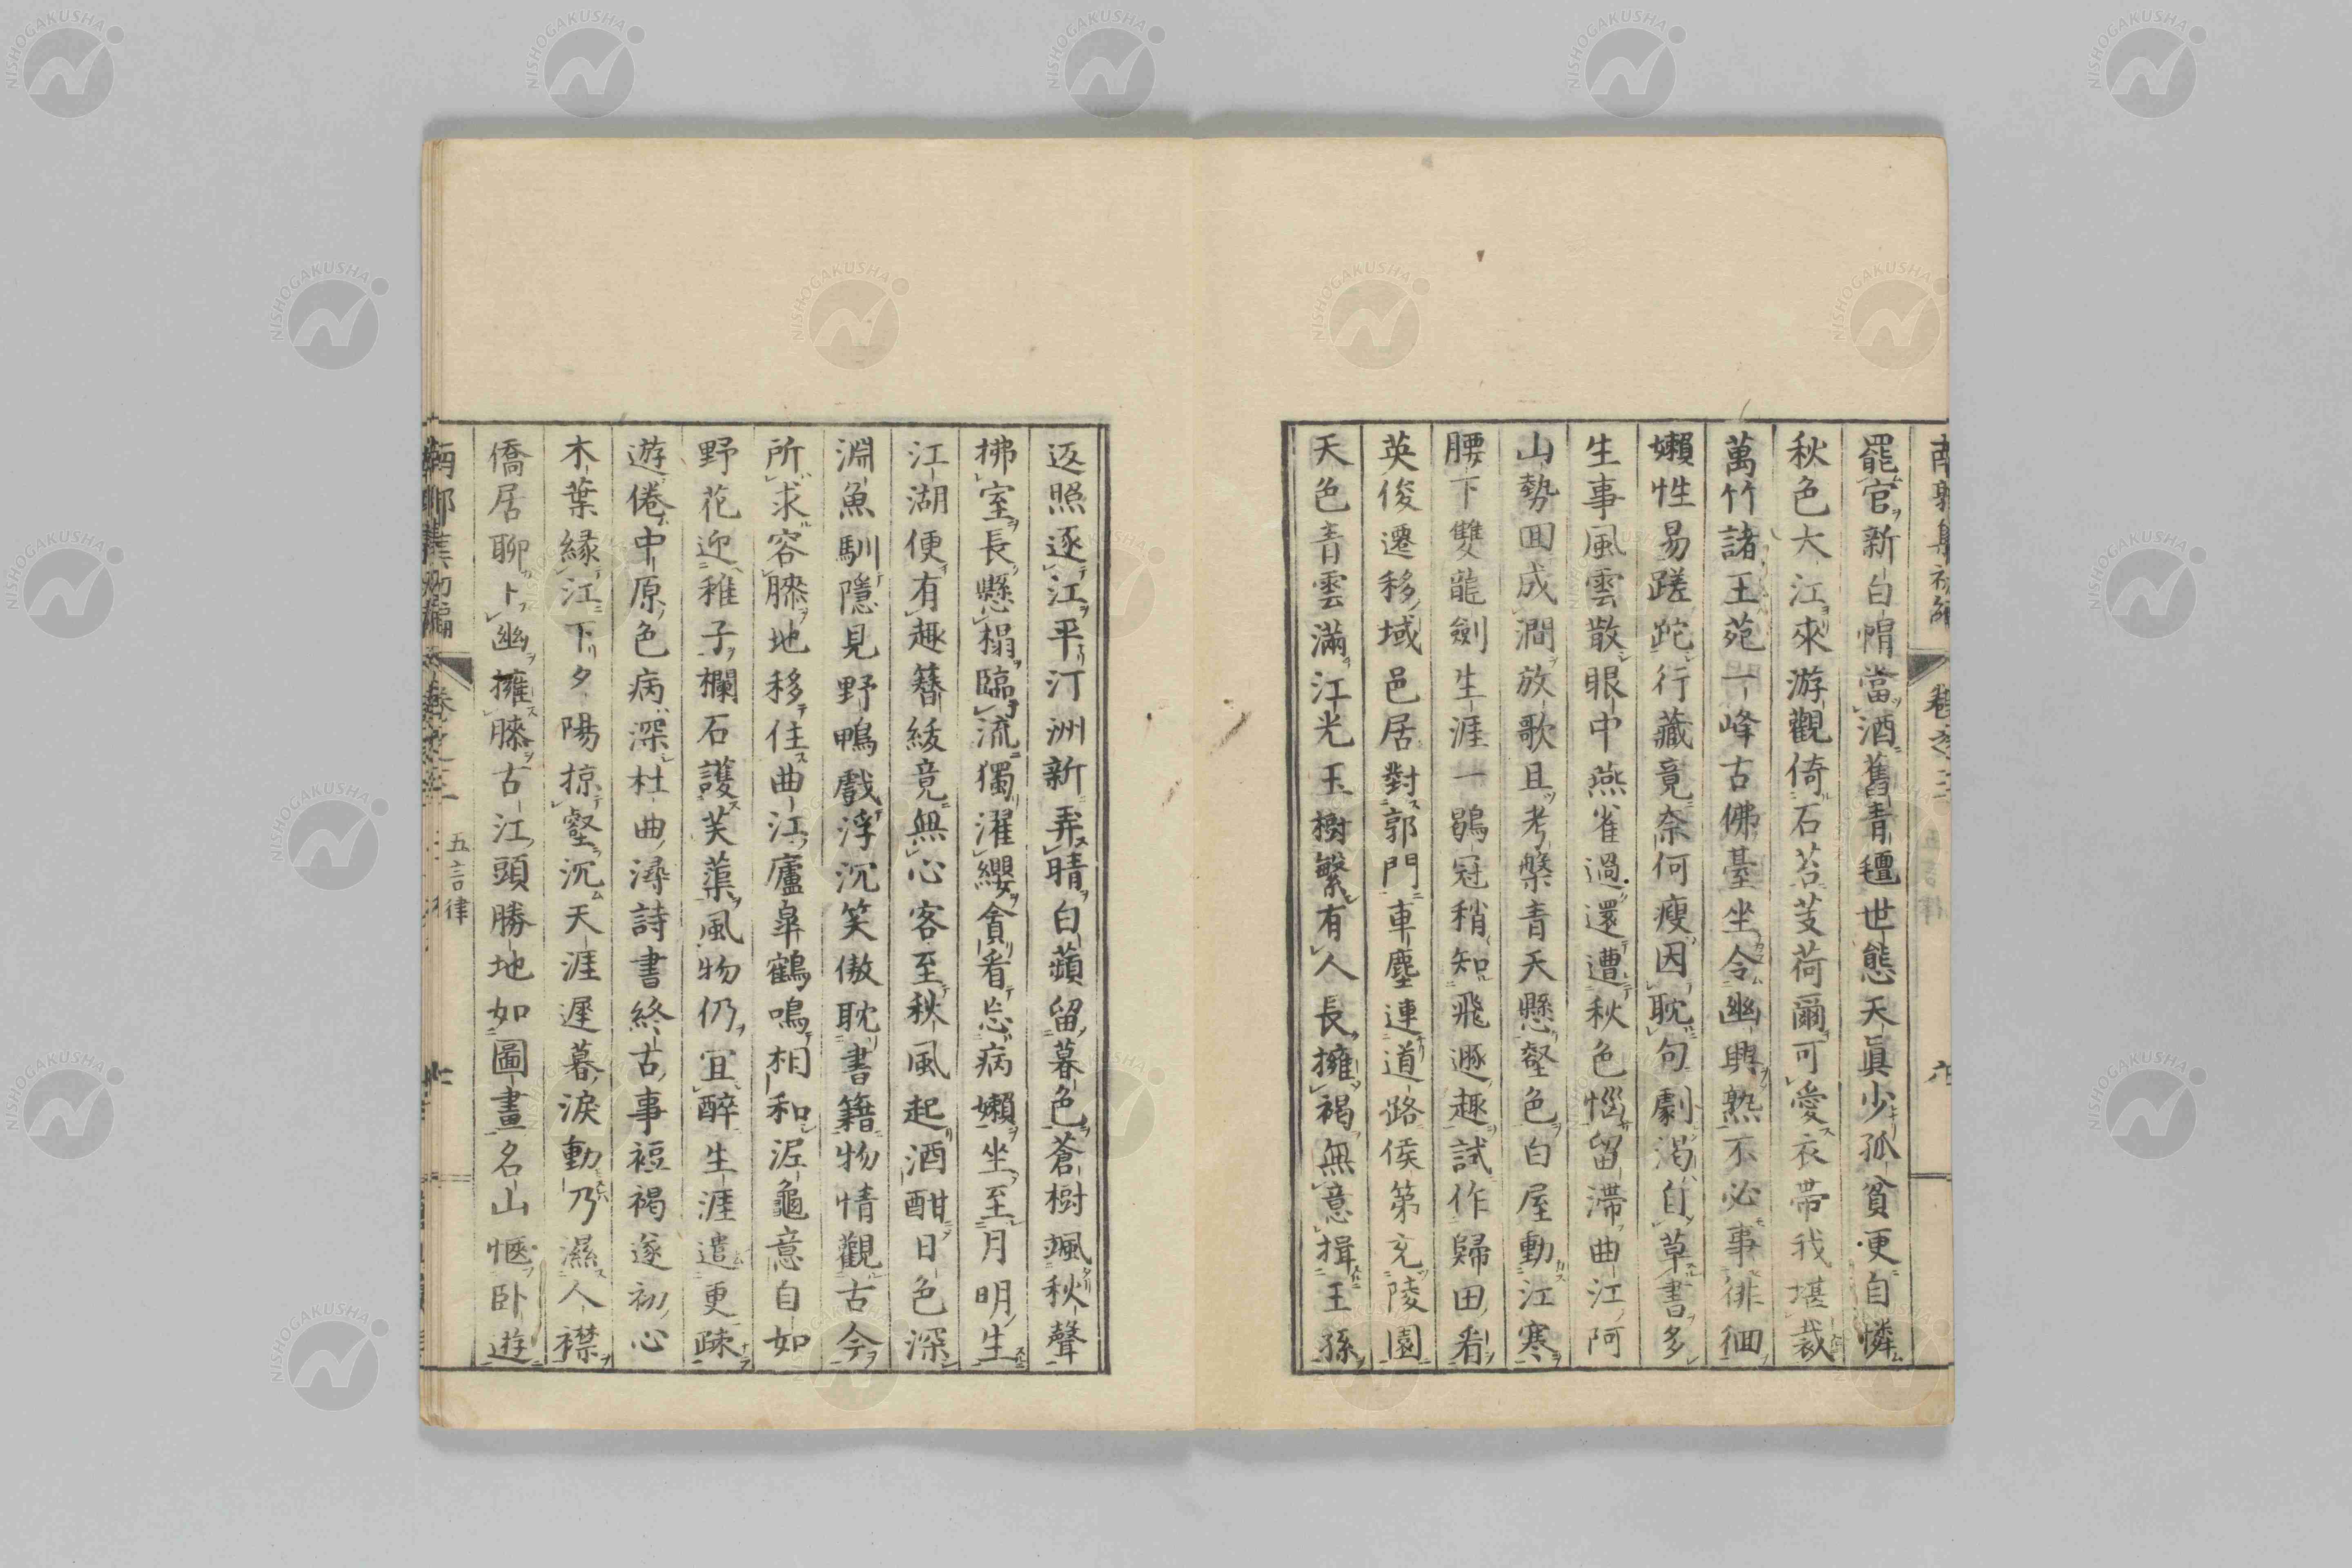 罷官新白帽當酒舊青氊世態天眞少孤貧更自憐
秋色大江來游觀倚石苔芰荷爾可愛衣帶我堪裁
萬竹諸王苑一峰古佛臺坐令幽興熟不必事徘徊
嬾性易蹉跎行藏竟奈何瘦因耽句劇渴自草書多
生事風雲散眼中燕雀過還遭秋色惱留滯曲江阿
山勢囬成澗放歌且考槃青天懸壑色白屋動江寒
腰下雙龍劍生涯一鶡冠稍知飛遯趣試作歸田看
英俊遷移域邑居對郭門車塵連道路侯第充陵園
天色青雲滿江光玉樹繁有人長擁褐無意揖王孫
返照逐江平汀洲新弄晴白蘋留暮色蒼樹颯秋聲
拂室長懸榻臨流獨濯纓貪看忘病嬾坐至月明生
江湖便有趣簪紱竟無心客至秋風起酒酣日色深
淵魚馴隱見野鴨戲浮沉笑傲耽書籍物情觀古今
所求容膝地移住曲江廬皐鶴鳴相和泥龜意自如
野花迎稚子欄石護芙蕖風物仍宜醉生涯遣更疎
遊倦中原色病深杜曲潯詩書終古事裋褐遂初心
木葉緣江下夕陽掠壑沉天涯遲暮淚動乃濕人襟
僑居聊卜幽擁膝古江頭勝地如圖畫名山愜臥遊
五言律
NISHOGAKUSHA